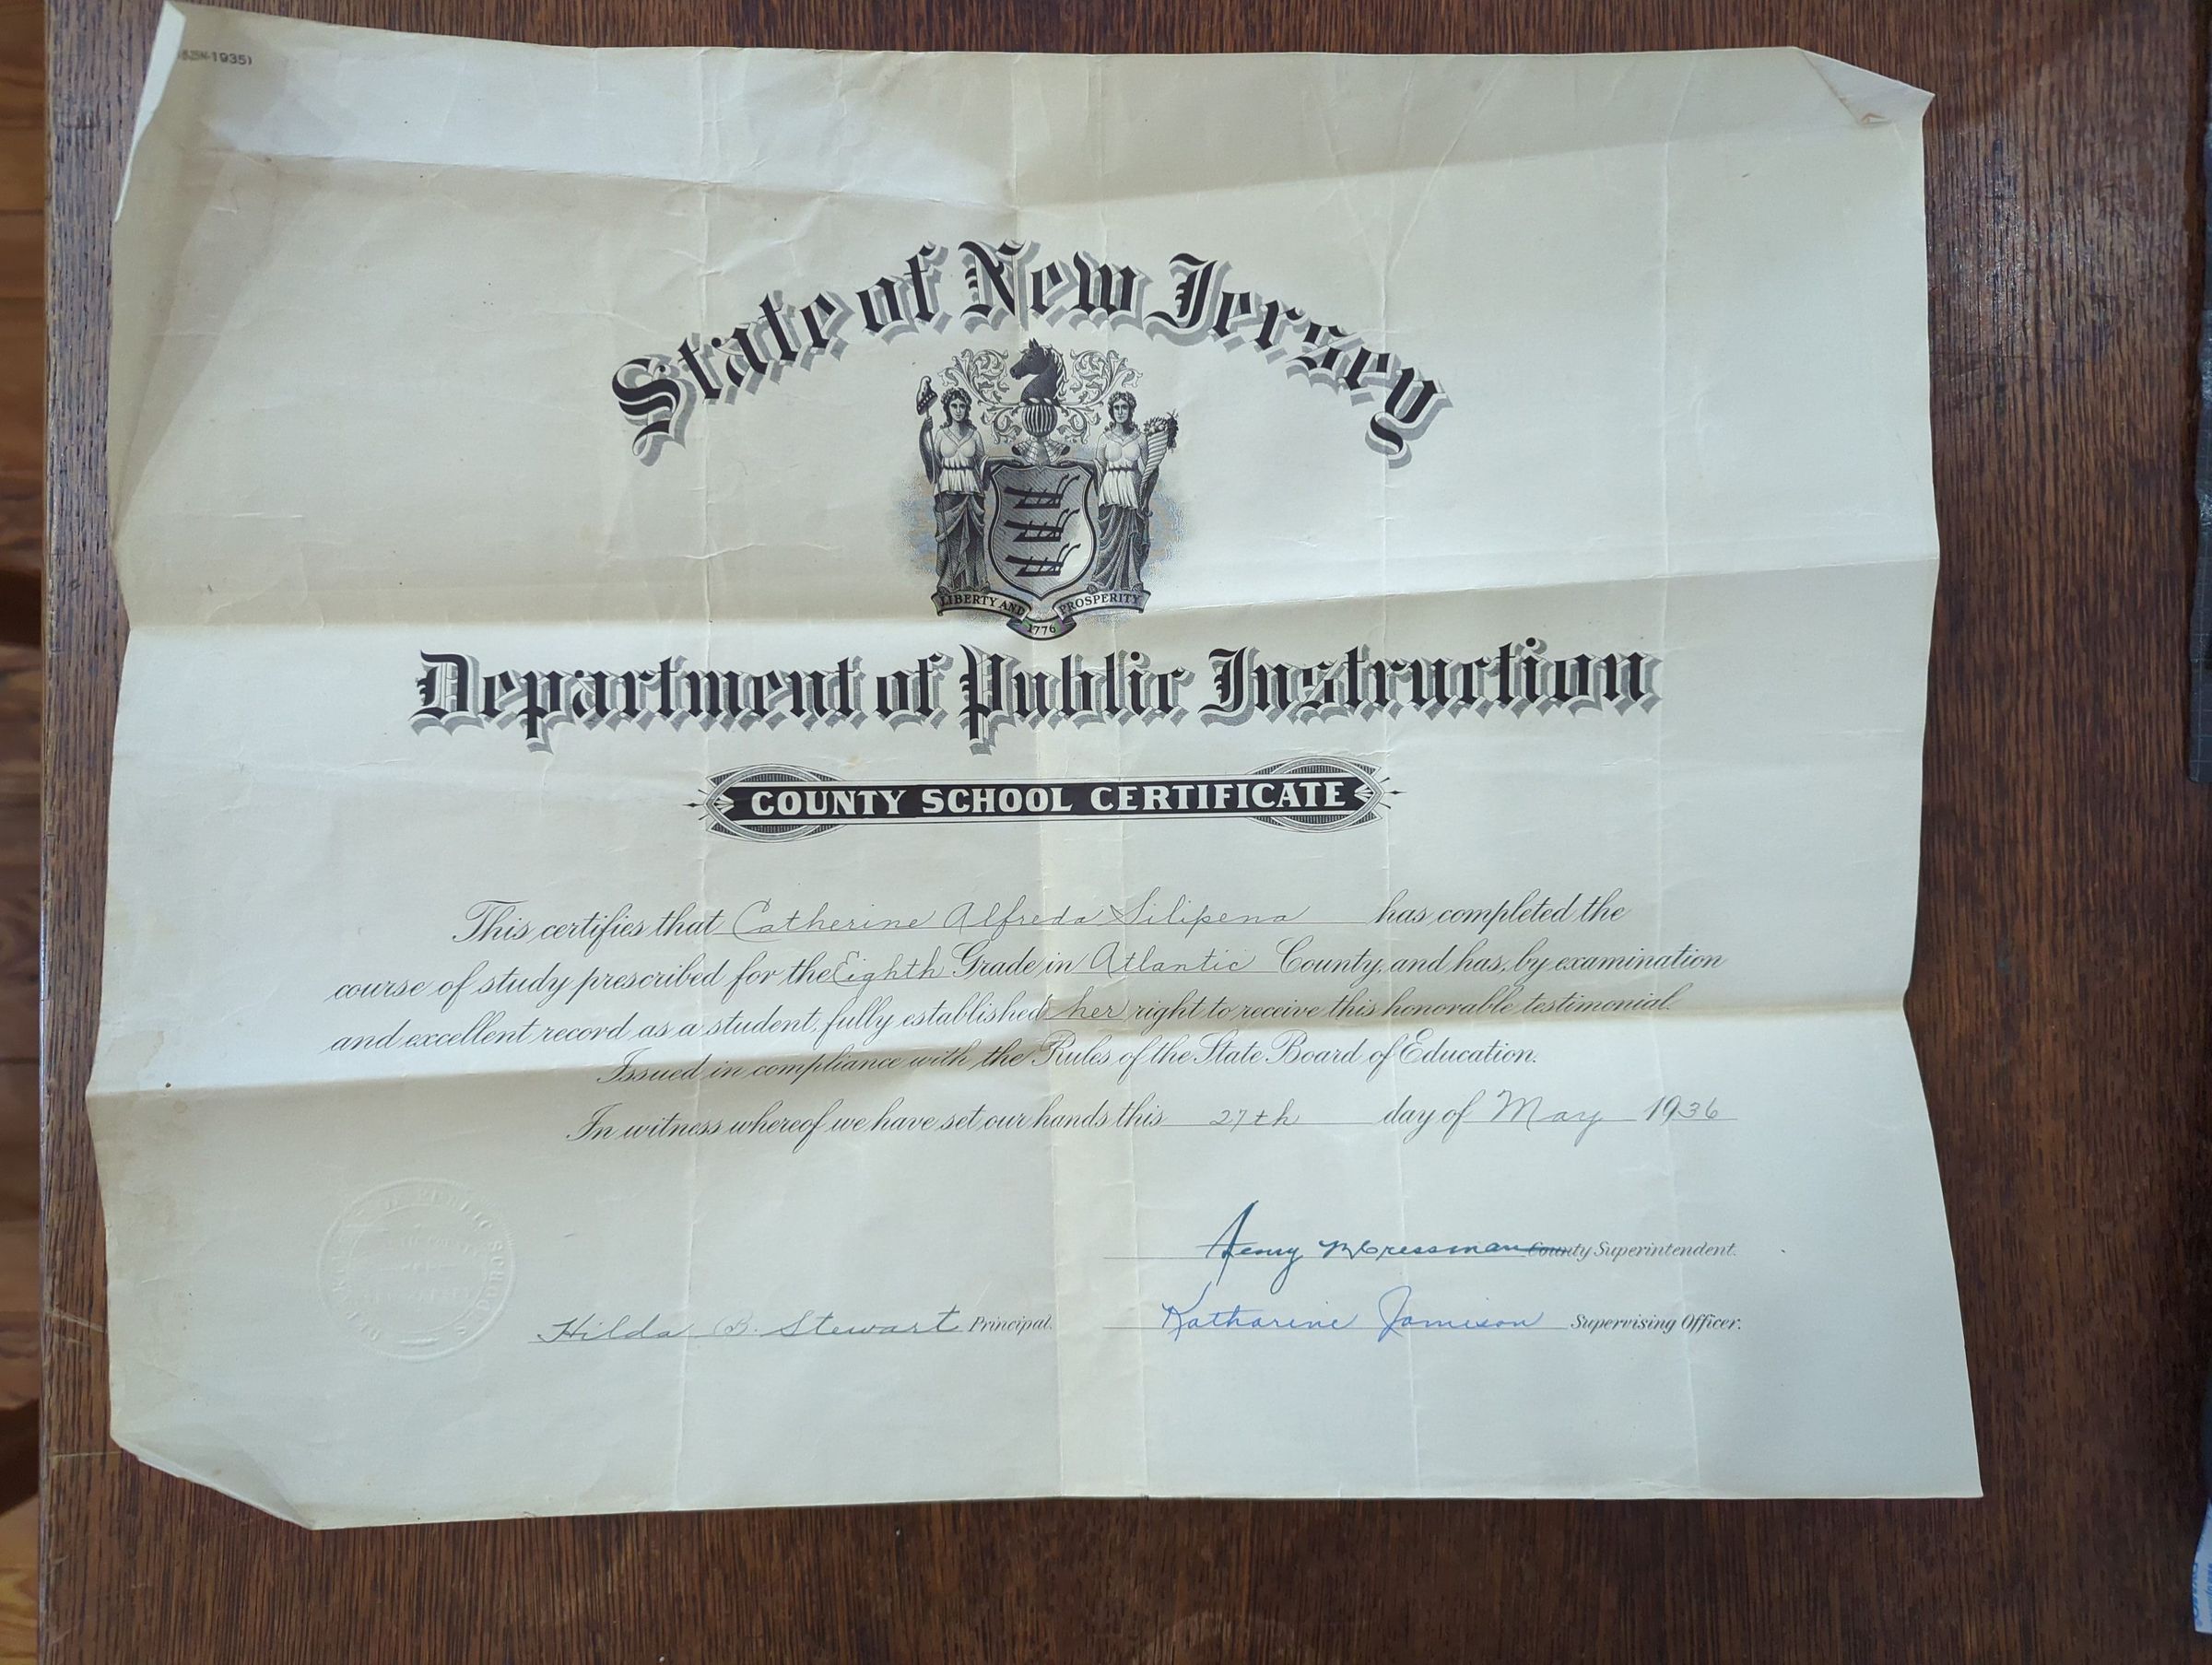 1935)
State of New Jersey
LIBERTY AND PROSPERITY
1776
Department of Public Instruction
COUNTY SCHOOL CERTIFICATE
This certifies that Catherine Alfreda Silipena has completed the
course of study prescribed for the Eighth Grade in Atlantic County, and has, by examination
and excellent record as a student, fully established her right to receive this honorable testimonial.
Issued in compliance with the Rules of the State Board of Education.
In witness whereof we have set our hands this 27th day of May 1936
Henry M Cressman County Superintendent.
Hilda B. Stewart Principal. Katharine Jamison Supervising Officer.
PUBLIC SCHOOLS